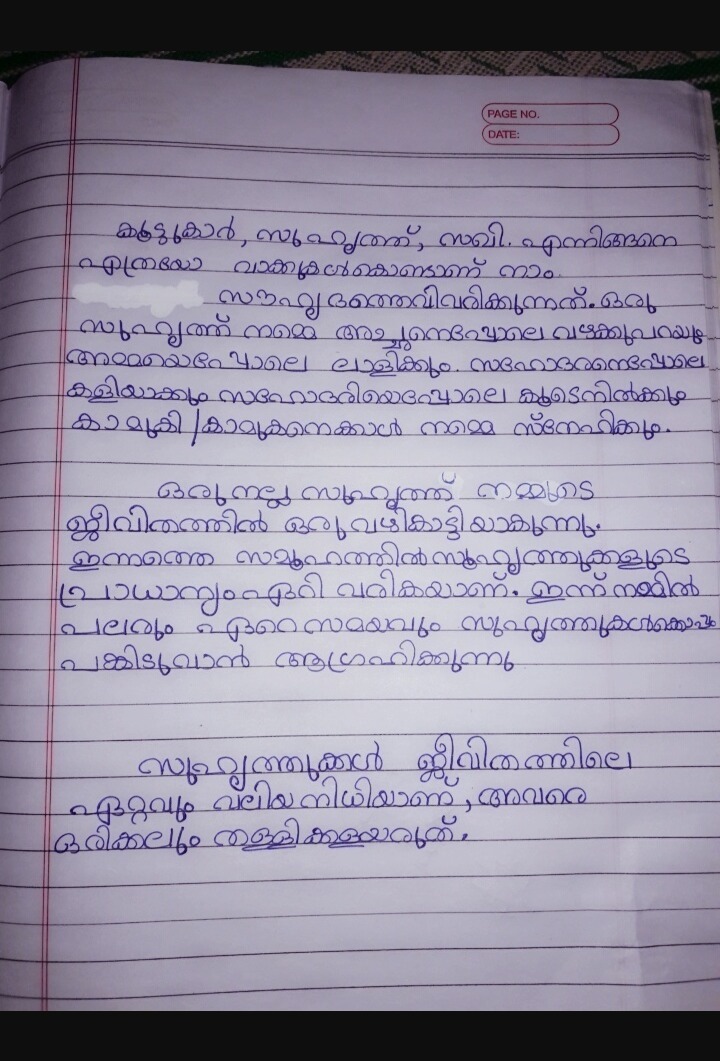 PAGE NO.
DATE:
കൂട്ടുകാർ, സുഹൃത്ത്, സഖി. എന്നിങ്ങനെ
എത്രയോ വാക്കുകൾകൊണ്ടാണ് നാം
സൗഹൃദത്തെവിവരിക്കുന്നത്. ഒരു
സുഹൃത്ത് നമ്മെ അച്ഛനെപ്പോലെ വഴക്കുപറയും
അമ്മയെപ്പോലെ ലാളിക്കും. സഹോദരനെപ്പോലെ
കളിയാക്കും സഹോദരിയെപ്പോലെ കൂടെനിൽക്കും
കാമുകി/കാമുകനെക്കാൾ നമ്മെ സ്നേഹിക്കും.
ഒരു നല്ല സുഹൃത്ത് നമ്മുടെ
ജീവിതത്തിൽ ഒരു വഴികാട്ടിയാകുന്നു.
ഇന്നത്തെ സമൂഹത്തിൽ സുഹൃത്തുക്കളുടെ
പ്രാധാന്യം ഏറി വരികയാണ്. ഇന്ന് നമ്മിൽ
പലരും ഏറെസമയവും സുഹൃത്തുകൾക്കൊപ്പം
പങ്കിടുവാൻ ആഗ്രഹിക്കുന്നു
സുഹൃത്തുക്കൾ ജീവിതത്തിലെ
ഏറ്റവും വലിയ നിധിയാണ്, അവരെ
ഒരിക്കലും തള്ളിക്കളയരുത്.